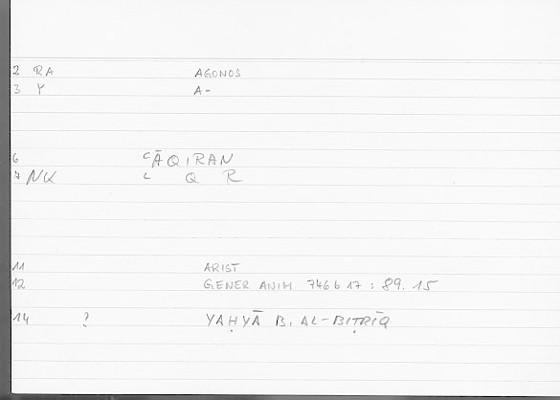 2 RA AGONOS
3 Y A-
6 ʿĀQIRAN
7 NK ʿ Q R
11 ARIST
12 GENER ANIM 746 b 17 : 89. 15
14 ? YAḤYĀ B. AL-BIṬRĪQ